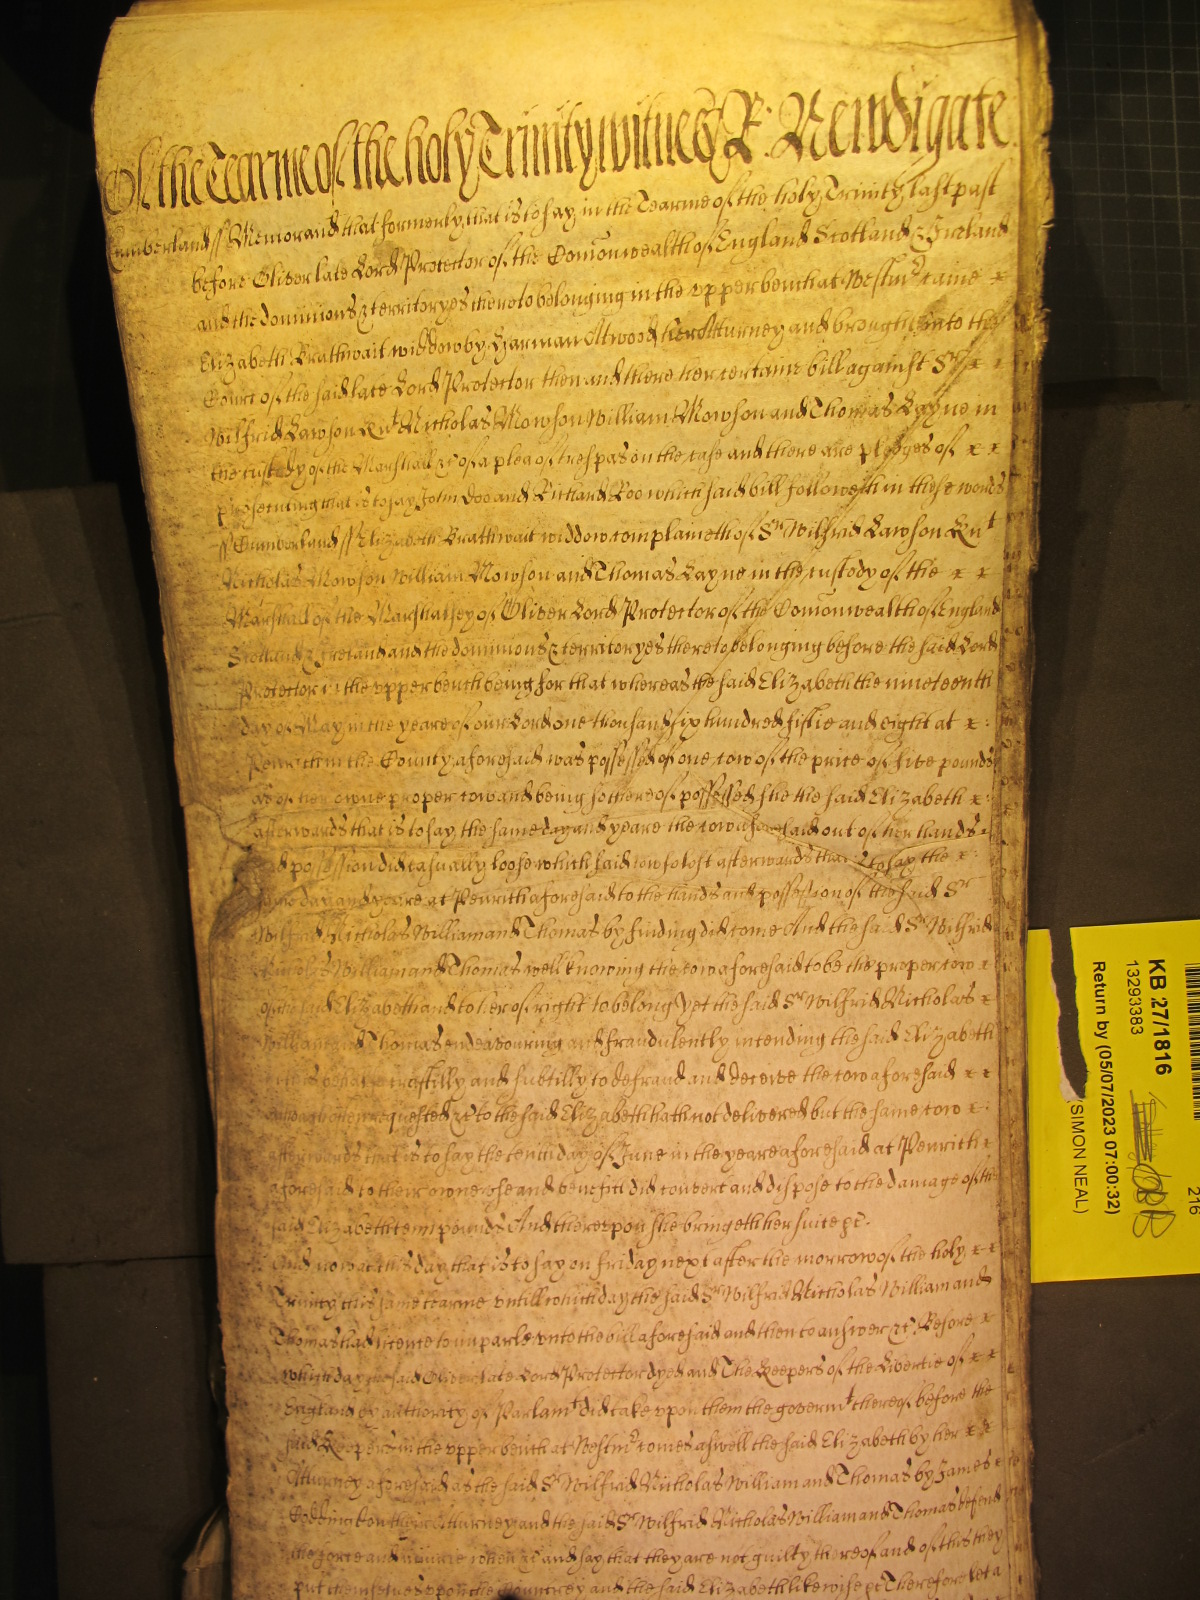 Of the Tearme of the holy Trinity witnes R: Newdigate
Cumberland ss Memorand that formerly that is to say in the Tearme of the holy Trinity last past
before Oliver late Lord Protector of the Comonwealth of England Scotland & Ireland
and the dominions & territoryes thereto belonging in the upper bench at Westmr came
Elizabeth Brathwait widdow by Harman Atwood her Atturney and brought into the
Court of the said late Lord Protector then and there her certaine bill against Sr
Wilfrid Lawson Knt Nicholas Mowson William Mowson and Thomas Layne in
the custody of the Marshall &c of a plea of trespas on the case and there are pledges of
prosecuting that is to say John Doo and Richard Roo which said bill followeth in these words
ss Cumberland ss Elizabeth Brathwait widdow complaineth of Sr Wilfrid Lawson Knt
Nicholas Mowson William Mowson and Thomas Layne in the custody of the
Marshall of the Marshalsey of Oliver Lord Protector of the Comonwealth of England
Scotland & Ireland and the dominions & territoryes thereto belonging before the said Lord
Protector in the upper bench being for that whereas the said Elizabeth the nineteenth
day of May in the yeare of our Lord one thousand six hundred fiftie and eight at
Penrith in the County aforesaid was possessed of one cow of the price of five pounds
as of her owne proper cow and being so thereof possessed she the said Elizabeth
afterwards that is to say the same day and yeare the cow aforesaid out of her hands
and possession did casually loose which said cow so lost afterwards that is to say the
same day and yeare at Penrith aforesaid to the hands and possession of the said Sr
Wilfrid Nicholas William and Thomas by finding did come And the said Sr Wilfrid
Nicholas William and Thomas well knowing the cow aforesaid to be the proper cow
of the said Elizabeth and to her of right to belong Yet the said Sr Wilfrid Nicholas
William and Thomas endeavouring and fraudulently intending the said Elizabeth
in this behalfe craftilly and subtilly to defraud and deceive the cow aforesaid
although often requested &c to the said Elizabeth hath not delivered but the same cow
afterwards that is to say the tenth day of June in the yeare aforesaid at Penrith
aforesaid to their owne use and benefitt did convert and dispose to the damage of the
said Elizabeth tenn pounds And thereupon she bringeth her suite &c.
And now at this day that is to say on friday next after the morrow of the holy
Trinity this same tearme untill which day the said Sr Wilfrid Nicholas William and
Thomas had licence to imparle unto the bill aforesaid and then to answer &c. Before
which day the said Oliver late Lord Protector dyed and The Keepers of the Libertie of
England by authority of Parlamt did take upon them the governmt thereof before the
said Keepers in the upper bench at Westmr comes aswell the said Elizabeth by her
Atturney aforesaid as the said Sr Wilfrid Nicholas William and Thomas by James
their Atturney and the said Sr Wilfrid Nicholas William and Thomas defend
the force and injurie when &c and say that they are not guilty thereof and of this they
put themselves upon the Countrey and the said Elizabeth likewise &c Therefore let a
KB 27/1816
13293383
Return by (05/07/2023 07:00:32)
(SIMON NEAL)
216